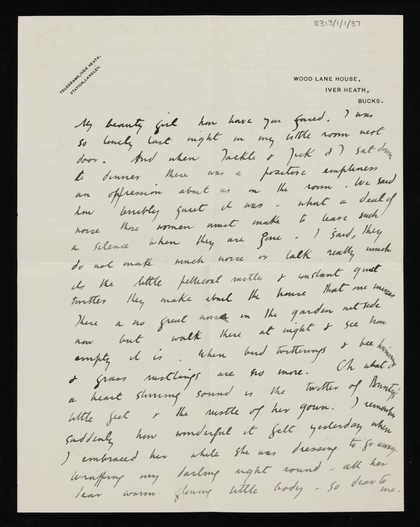 8313/1/1/37
TELEGRAMS, IVER HEATH.
STATION, LANGLEY.
WOOD LANE HOUSE,
IVER HEATH,
BUCKS.
My beauty girl how have you fared. I was
so lonely last night in my little room next
door. And when Jack & I sat down
to dinner there was a positive emptiness
an oppression about us in the room. We said
how terribly quiet it was - what a deal of
noise those women must make to leave such
a silence when they are gone. I said, they
do not make much noise or talk really much
its the little petticoat rustle & constant quiet
twitter they make about the house that one misses
There is no great noise in the garden outside
now but walk there at night & see how
empty it is. When bird twitterings & bee humming
& grass rustlings are no more. Oh what
a heart stirring sound is the twitter of
little feet & the rustle of her gown. I remember
suddenly how wonderful it felt yesterday when
I embraced her while she was dressing to go away
wrapping my darling right round - all her
dear warm glowing little body - so dear to me.